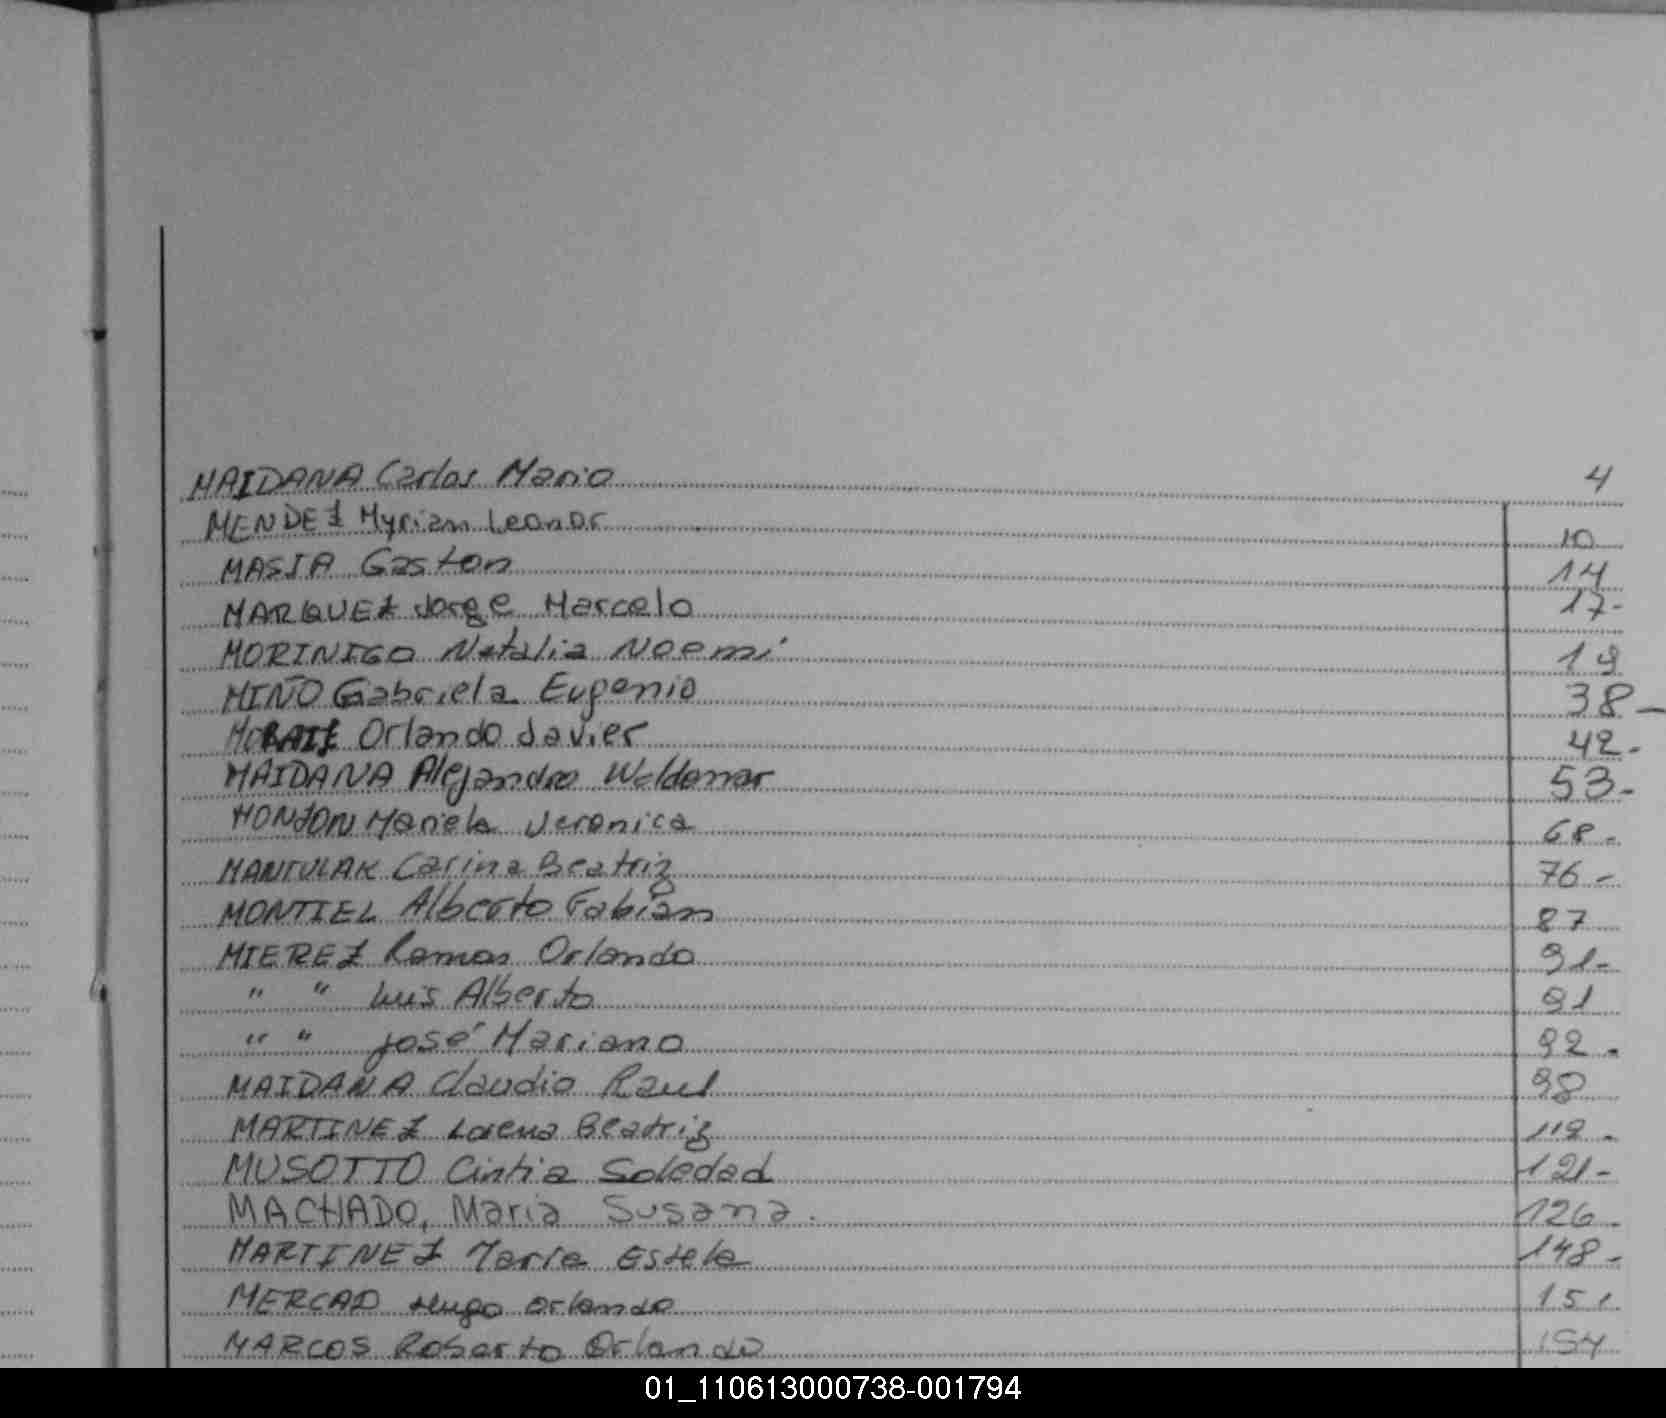 MAIDANA Carlos Mario 4
MENDEZ Myrian Leonor 10
MASIA Gaston 14
MARQUEZ Jorge Marcelo 17-
MORINIGO Natalia Noemi 19
MIÑO Gabriela Eugenia 38-
Orlando Javier 42-
MAIDANA Alejandro Waldemar 53-
MONZON Mariela Veronica 68-
MANTULAK Carina Beatriz 76-
MONTIEL Alberto Fabian 87
MIEREZ Ramon Orlando 91-
" " Luis Alberto 91
" " José Mariano 92-
MAIDANA Claudio Raul 98
MARTINEZ Lorena Beatriz 112-
MUSOTTO Cintia Soledad 121-
MACHADO, Maria Susana. 126-
MARTINEZ Maria Estela 148-
MERCAD Hugo Orlando 151
MARCOS Roberto Orlando 154
01_110613000738-001794